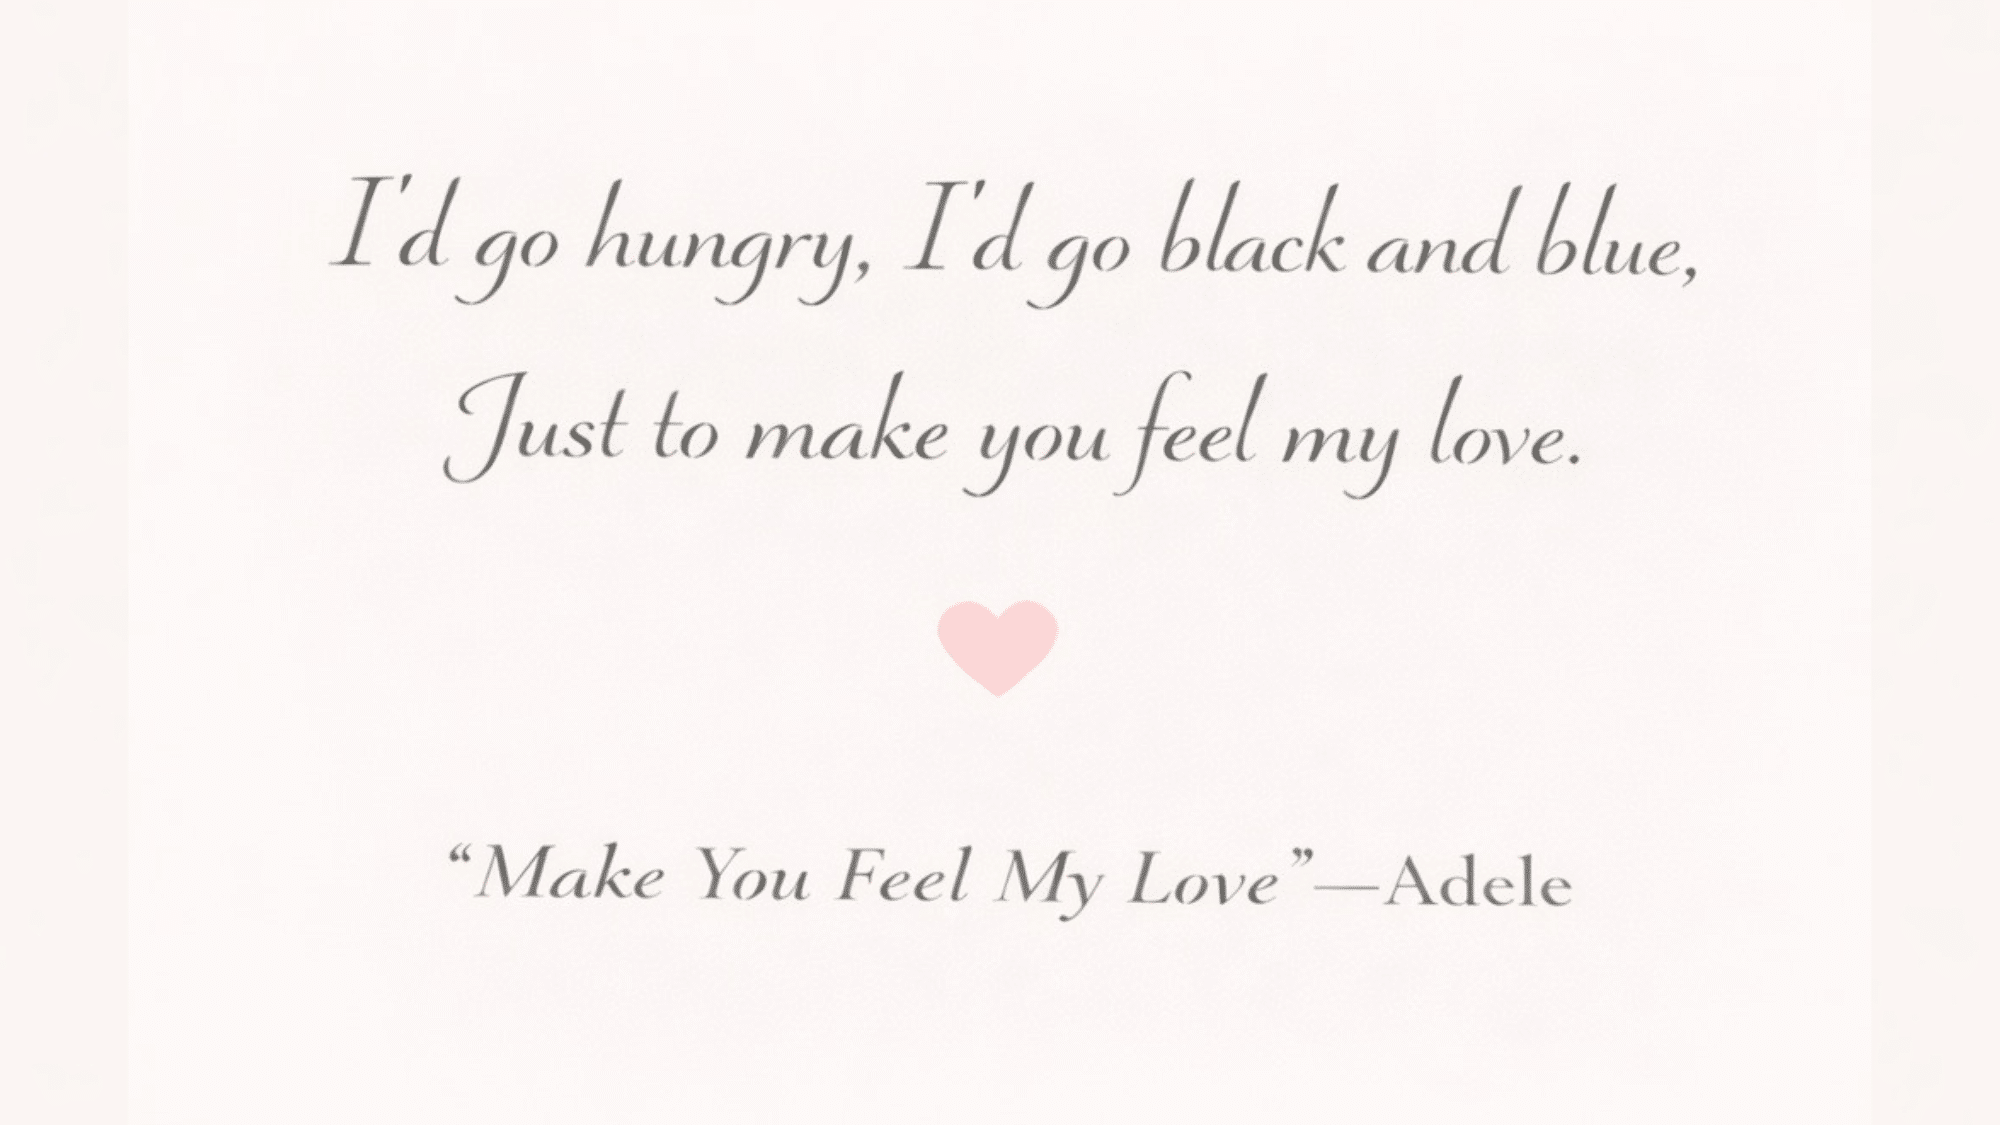 I'd go hungry, I'd go black and blue,
Just to make you feel my love.
“Make You Feel My Love”—Adele